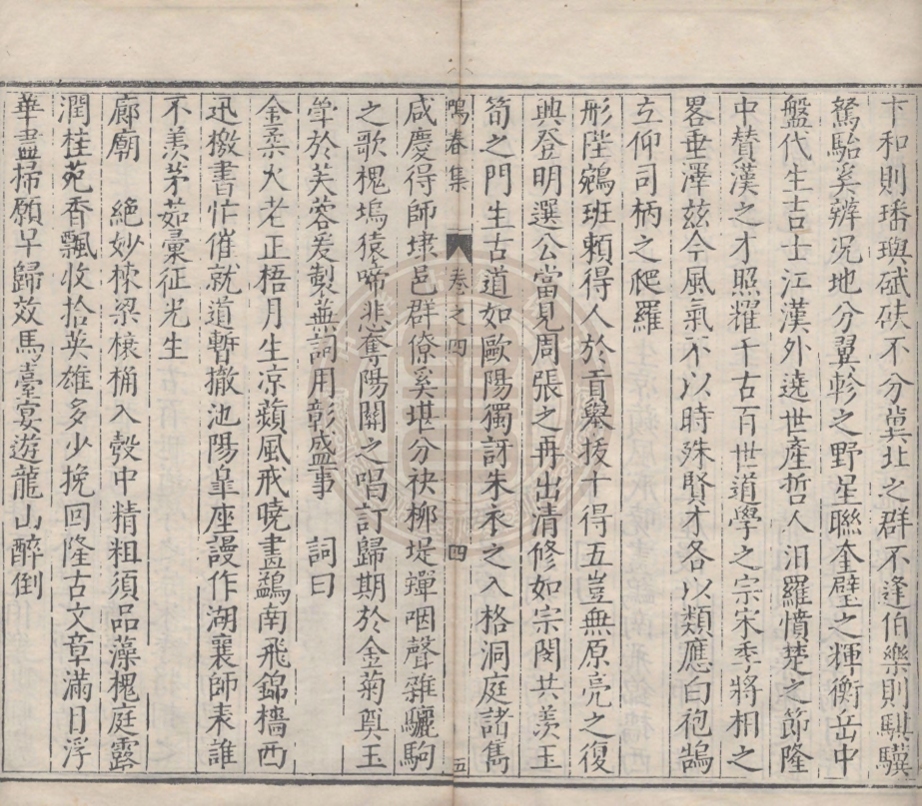 卞和則璠璵碔砆不分冀北之群不逢伯樂則騏驥
駑駘奚辨况地分翼軫之野星聯奎璧之輝衡岳中
盤代生吉士江漢外遶世產哲人汨羅憤楚之節隆
中贊漢之才照耀千古百世道學之宗宋季將相之
畧垂澤茲今風氣不以時殊賢才各以類應白袍鵠
立仰司柄之爬羅
彤陛鵷班頼得人於貢舉拔十得五豈無原亮之復
興登明選公當見周張之再出清修如宗閔共羡玉
筍之門生古道如歐陽獨訝朱衣之入格洞庭諸雋
鳴春集
卷之四
四
五
咸慶得師埭邑群僚奚堪分袂柳堤蟬咽聲雜驪駒
之歌槐塢猿啼悲奪陽關之唱訂歸期於金菊奠玉
斝於芙蓉爰製蕪詞用彰盛事 詞曰
金柔火老正梧月生凉蘋風戒曉畫鷁南飛錦檣西
迅檄書忙催就道暫撤池陽皐座謾作湖襄師表誰
不羨茅茹彙征光生
廊廟 絶妙棟梁榱桷入彀中精粗須品藻槐庭露
潤桂苑香飄收拾英雄多少挽回隆古文章滿目浮
華盡掃願早歸效馬臺宴遊龍山醉倒